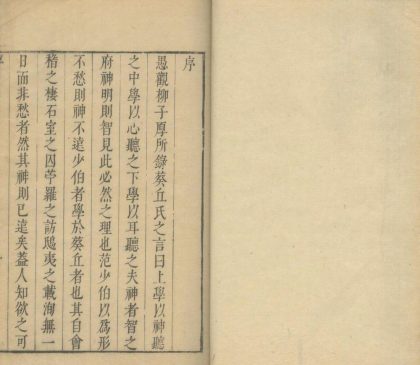 序
愚觀柳子厚所錄葵丘氏之言曰上學以神聽
之中學以心聽之下學以耳聽之夫神者智之
府神明則智見此必然之理也范少伯以為形
不愁則神不遠少伯者學於葵丘者也其自會
稽之棲石室之囚苧羅之訪鴟夷之載洵無一
日而非愁者然其神則已遠矣蓋人知欲之可
序